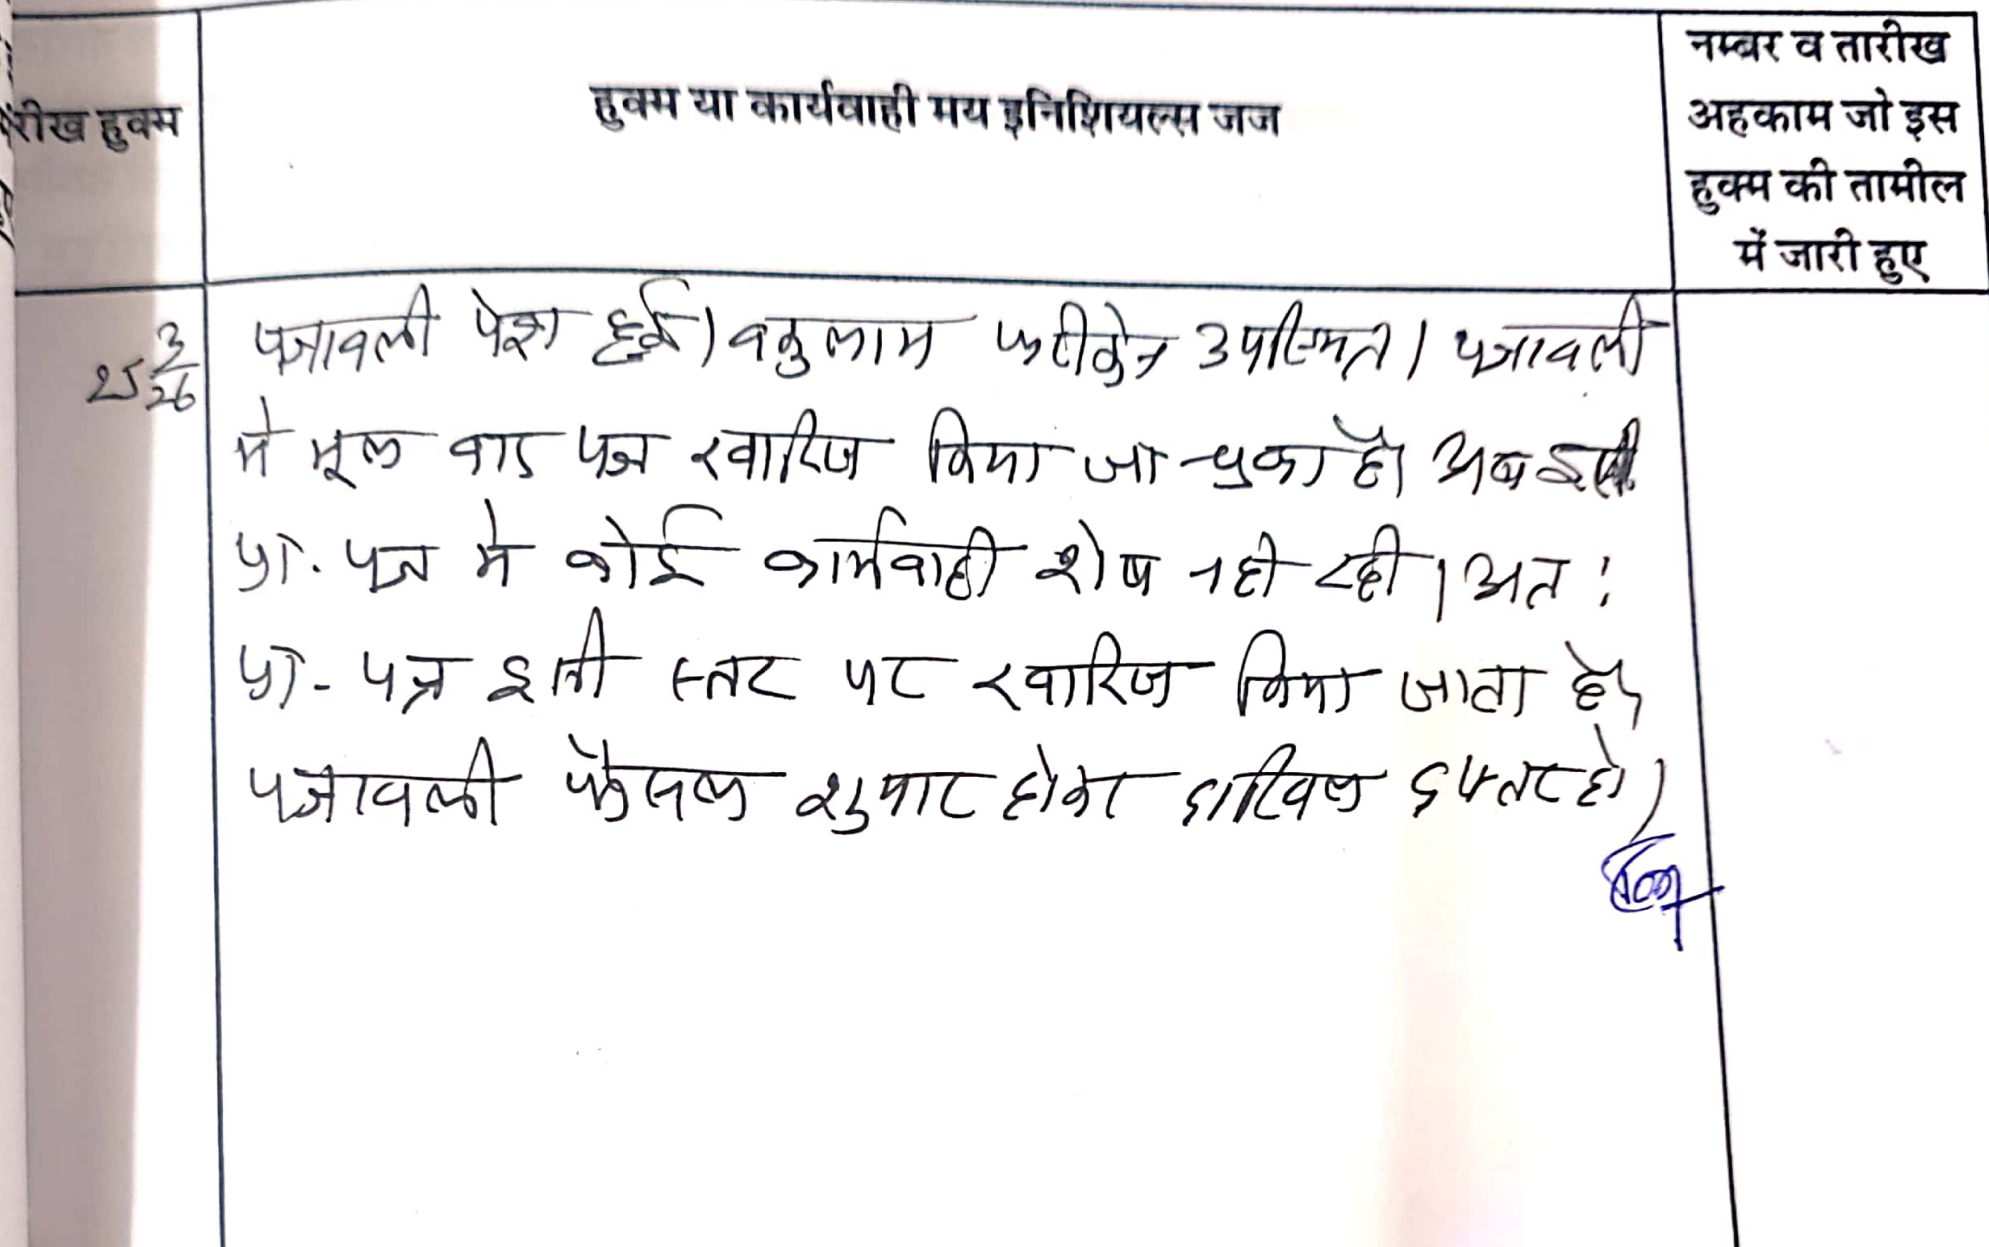 रीख हुक्म
हुक्म या कार्यवाही मय इनिशियल्स जज
नम्बर व तारीख
अहकाम जो इस
हुक्म की तामील
में जारी हुए
25 3/26
पत्रावली पेश हुई। वकुलाय फरीकेन उपस्थित। पत्रावली
मे मूल वाद पत्र खारिज किया जा चुका है। अब इस
प्रा. पत्र मे कोई कार्यवाही शेष नही रही। अत:
प्रा- पत्र इसी स्तर पर खारिज किया जाता है।
पत्रावली फैसल शुमार होकर दाखिल दफ्तर हो।